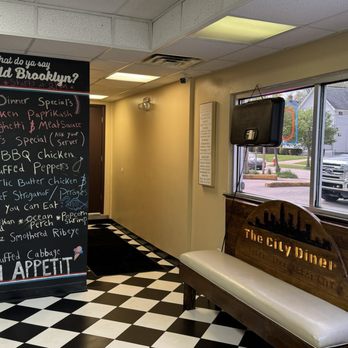 hat do ya say
ld Brooklyn?
Dinner Special's
cken Paprikash
ghetti & Meat Sauce
's Special (Ask your Server)
BBQ Chicken
uffed Peppers
rlic Butter Chicken
ef Stroganof
you can Eat
Ocean Perch Popcorn Shrimp
oz Smothered Ribeye
uffed Cabbage
N APPETIT
The City Diner